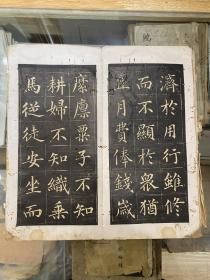 濟於用行雖修
而不顯於眾猶
且月費俸錢歲
糜廩粟子不知
耕婦不知織乘
馬從徒安坐而